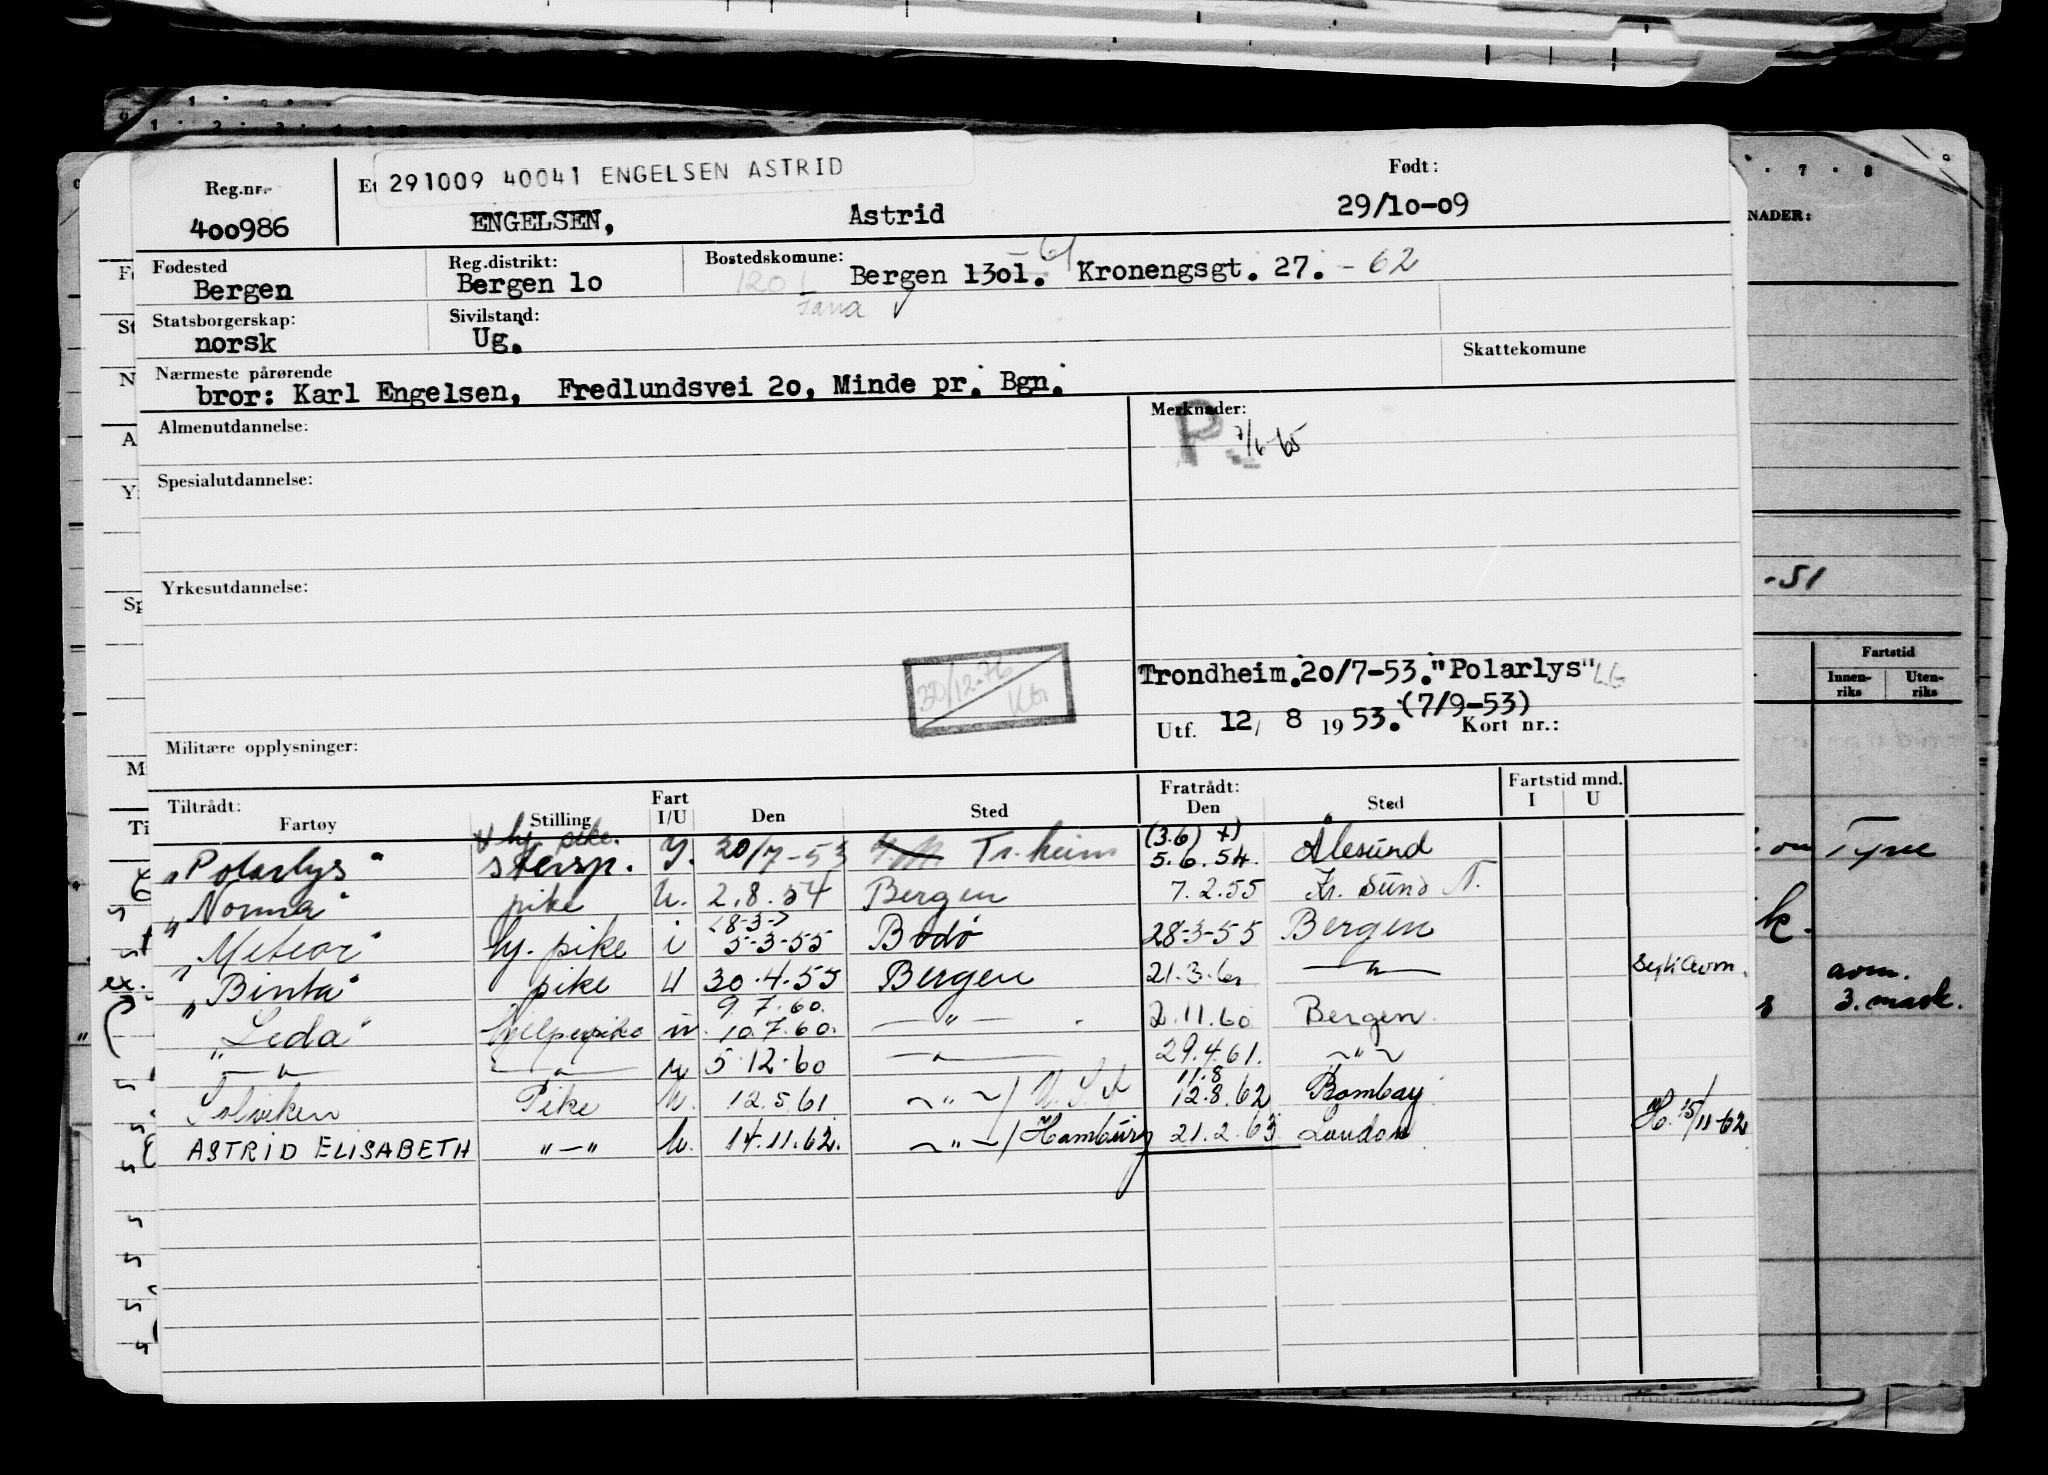 291009 40041 ENGELSEN ASTRID
Reg.nr. Et Født:
400986 ENGELSEN, Astrid 29/10-09
Fødested Reg.distrikt: Bostedskomune: -61
Bergen Bergen 10 1201 Bergen 1301. Kronengsgt. 27. -62
Statsborgerskap: Sivilstand:
norsk Ug.
Nærmeste pårørende Skattekomune
bror: Karl Engelsen, Fredlundsvei 20, Minde pr. Bgn.
Almenutdannelse: Merknader:
P. 7/6-65
Spesialutdannelse:
Yrkesutdannelse:
30/12-76
Trondheim.20/7-53."Polarlys" LG
Utf. 12/ 8 1953.(7/9-53) Kort nr.:
Militære opplysninger:
Tiltrådt: Fart Fratrådt: Fartstid mnd.
Fartøy Stilling I/U Den Sted Den Sted I U
x hj. pike. (3.6) x)
"Polarlys" stersp. I. 20/7-53 Tr.heim 5.6.54. Ålesund
"Norma" pike u. 2.8.54 Bergen 7.2.55 Kr. Sund N.
(8-3-)
"Meteor" hj. pike i 5-3-55 Bodø 28-3-55 Bergen
"Binta" pike u 30.4.55 Bergen 21.3.60 —"—
9.7.60.
"Leda" hjelpepike u. 10.7.60. —"— 2.11.60 Bergen.
—"— —"— u 5.12.60 —"— 29.4.61. ~"~
11.8
Solviken Pike u. 12.5.61 ~"~/U.S.A 12.8.62 Bombay
ASTRID ELISABETH "—" u. 14.11.62. ~"~/Hamburg 21.2.63 London H. 15/11-62
NADER:
-51
Fartstid
Innen-riks Uten-riks
Tyne
k.
avm.
3. mask.